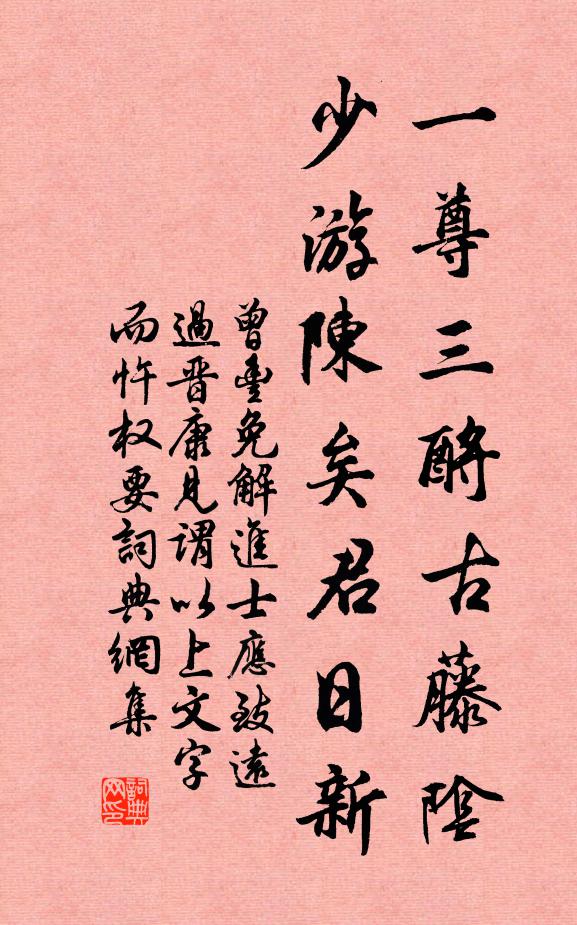 一尊三酹古藤陰
少游陳矣君日新
曾豐免解進士應致遠
過晉康見謂以上文字
而忤权要詞典網集
詞典网印